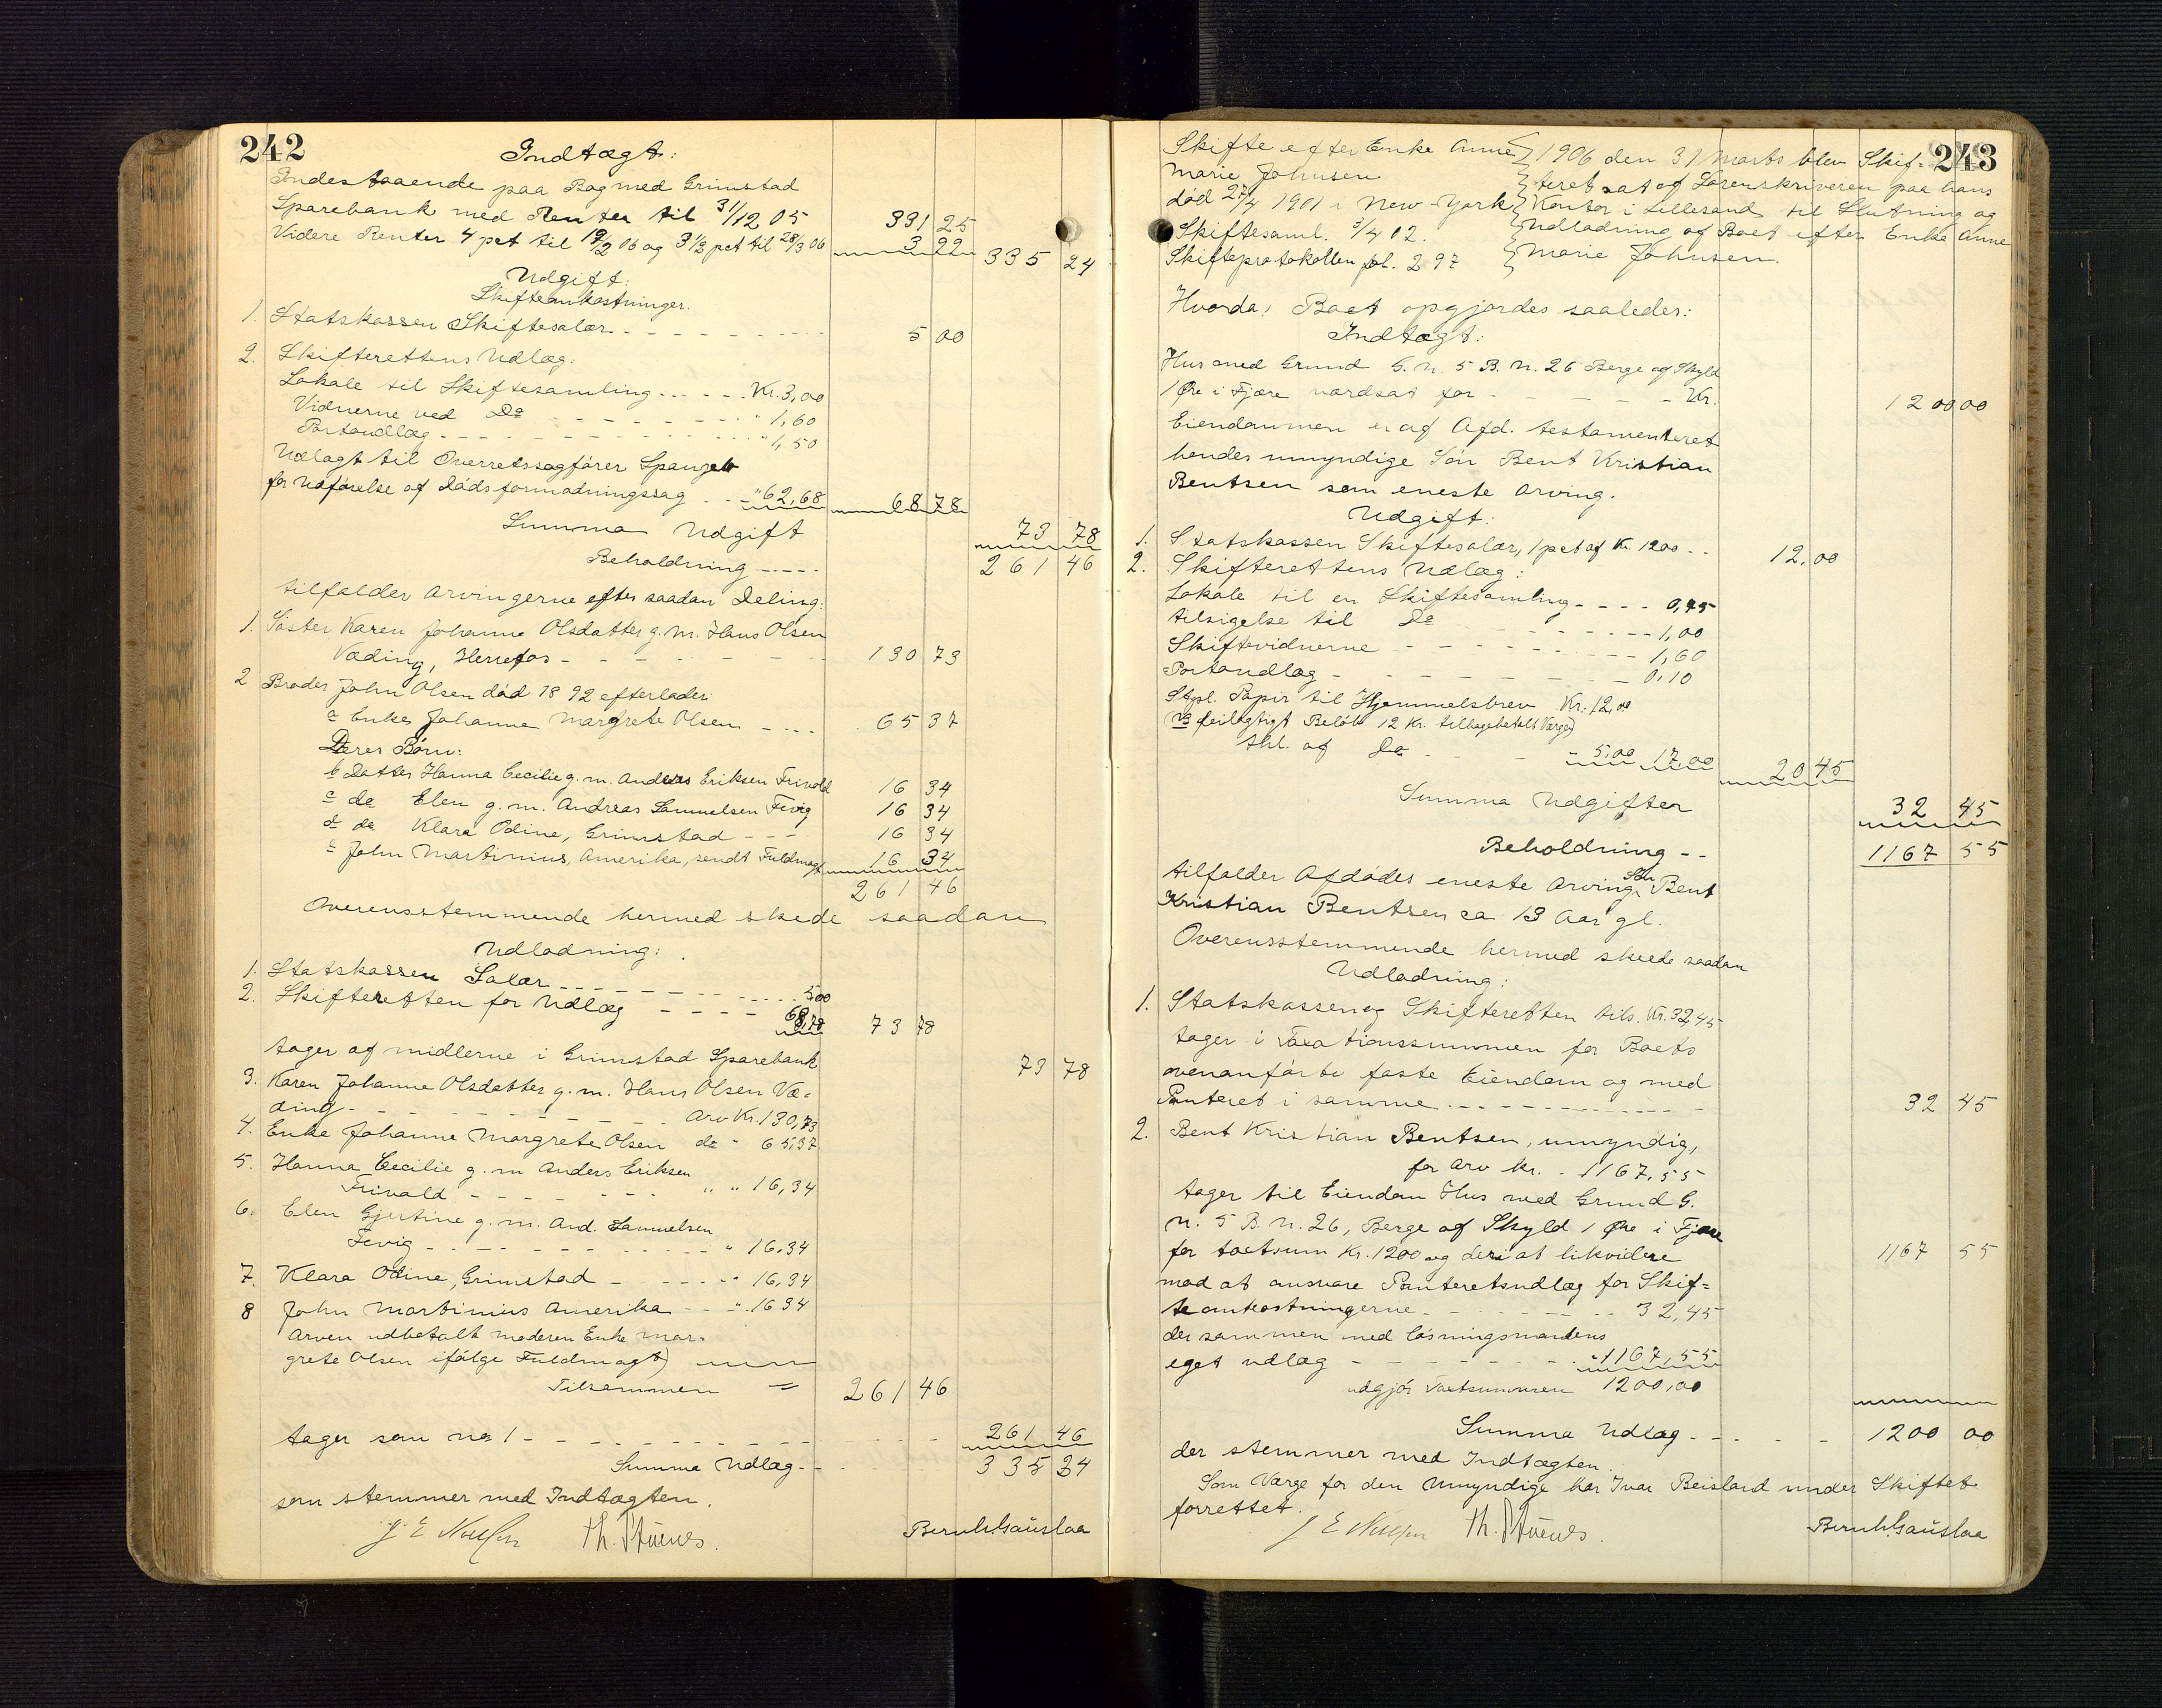 242
Indtægt:
Indestaaende paa Bog med Grimstad
Sparebank med Renter til 31/12 05 331 25
Videre Renter 4 pct til 19/2 06 og 3 1/2 pct til 28/3 06 3 99 335 24
Udgift:
Skifteomkostninger.
1. Statskassen Skiftesalær 5 00
2. Skifterettens Udlæg:
Lokale til Skiftesamling Kr. 3,00
Vidnerne ved Do " 1,60
Portoudlæg " 1,50
Udlagt til Overretssagfører
for Udførelse af Dødsformodningssag " 62,68 68 78
Summa Udgift 73 78
Beholdning 261 46
tilfalder Arvingerne efter saadan Deling:
1. Søster Karen Johanne Olsdatter g. m. Hans Olsen
Væding, Herrefos 130 73
2 Broder John Olsen død 1892 efterlader:
a Enke Johanne Margrete Olsen 65 37
Deres Børn:
b Datter Hanna Cecilie g. m. Anders Eriksen Frivold 16 34
c do Elen g. m. Andreas Samuelsen Fevig 16 34
d do Klara Odine, Grimstad 16 34
e John Martinius, Amerika, sendt Fuldmagt 16 34
261 46
Overensstemmende hermed skede saadan
Udlodning:
1. Statskassen Salær 5 00
2. Skifteretten for Udlæg 68,78 73 78
tager af midlerne i Grimstad Sparebank 73 78
3. Karen Johanne Olsdatter g. m. Hans Olsen Væ-
ding Arv Kr. 130,73
4. Enke Johanne Margrete Olsen do " 65,37
5. Hanna Cecilie g. m. Anders Eriksen
Frivold " " 16,34
6. Elen Gjertine g. m. And. Samuelsen
Fevig " 16,34
7. Klara Odine, Grimstad " 16,34
8 John Martinius Amerika " 16 34
Arven udbetalt moderen Enke Mar-
grete Olsen ifølge Fuldmagt)
Tilsammen 261 46
tager som no 1 261 46
Summa Udlæg 335 24
som stemmer med Indtægten.
Th. Bernh. Gauslaa
243
Skifte efter Enke Anne
Marie Johnsen
død 27/4 1901 i New-York
Skiftesaml. 3/4 02.
Skifteprotokollen fol. 297
1906 den 31 Marts blev Skif-
teret sat af Sorenskriveren paa hans
Kontor i Lillesand til Slutning og
Udlodning af Boet efter Enke Anne
Marie Johnsen.
Hvorda: Boet opgjordes saaledes:
Indtægt:
Hus med Grund G. n. 5 B. n. 26 Berge af Skyld
1 Øre i Fjære værdsat for Kr. 1200 00
Eiendommen er af Afd. testamenteret
hendes umyndige Søn Bent Kristian
Bentsen som eneste Arving.
Udgift:
1. Statskassen Skiftesalær, 1 pct af Kr. 1200 12,00
2. Skifterettens Udlæg:
Lokale til en Skiftesamling 0,75
tilsigelse til Do 1,00
Skiftevidnerne 1,60
Portoudlæg 0,10
Stpl. Papir til Hjemmelsbrev Kr. 12,00
(NB feilagtigt Beløb 12 Kr. tilbagebetalt Værge)
thl. af Do " 5,00 17,00 20 45
Summa Udgifter 32 45
Beholdning 1167 55
tilfalder Afdødes eneste Arving Søn Bent
Kristian Bentsen ca 13 Aar gl.
Overensstemmende hermed skeede saadan
Udlodning:
1. Statskassen og Skifteretten tils. Kr. 32,45
tager i Taxationssummen for Boets
ovenanførte faste Eiendom og med
Panteret i samme 32 45
2. Bent Kristian Bentsen, umyndig,
for Arv Kr. 1167,55
tager til Eiendom Hus med Grund G.
n. 5 B. n. 26, Berge af Skyld 1 Øre i Fjære
for taxtsum Kr. 1200 og deri at likvidere 1167 55
mod at ansvare Panteretsudlæg for Skif-
teomkostningerne 32,45
der sammen med løsningsmandens
eget udlæg " 1167,55
udgjør Taxtsummen 1200,00
Summa Udlæg 1200 00
der stemmer med Indtægten.
Som Værge for den Umyndige har Ivar Beisland under Skiftet
forrettet.
Th. Bernh. Gauslaa